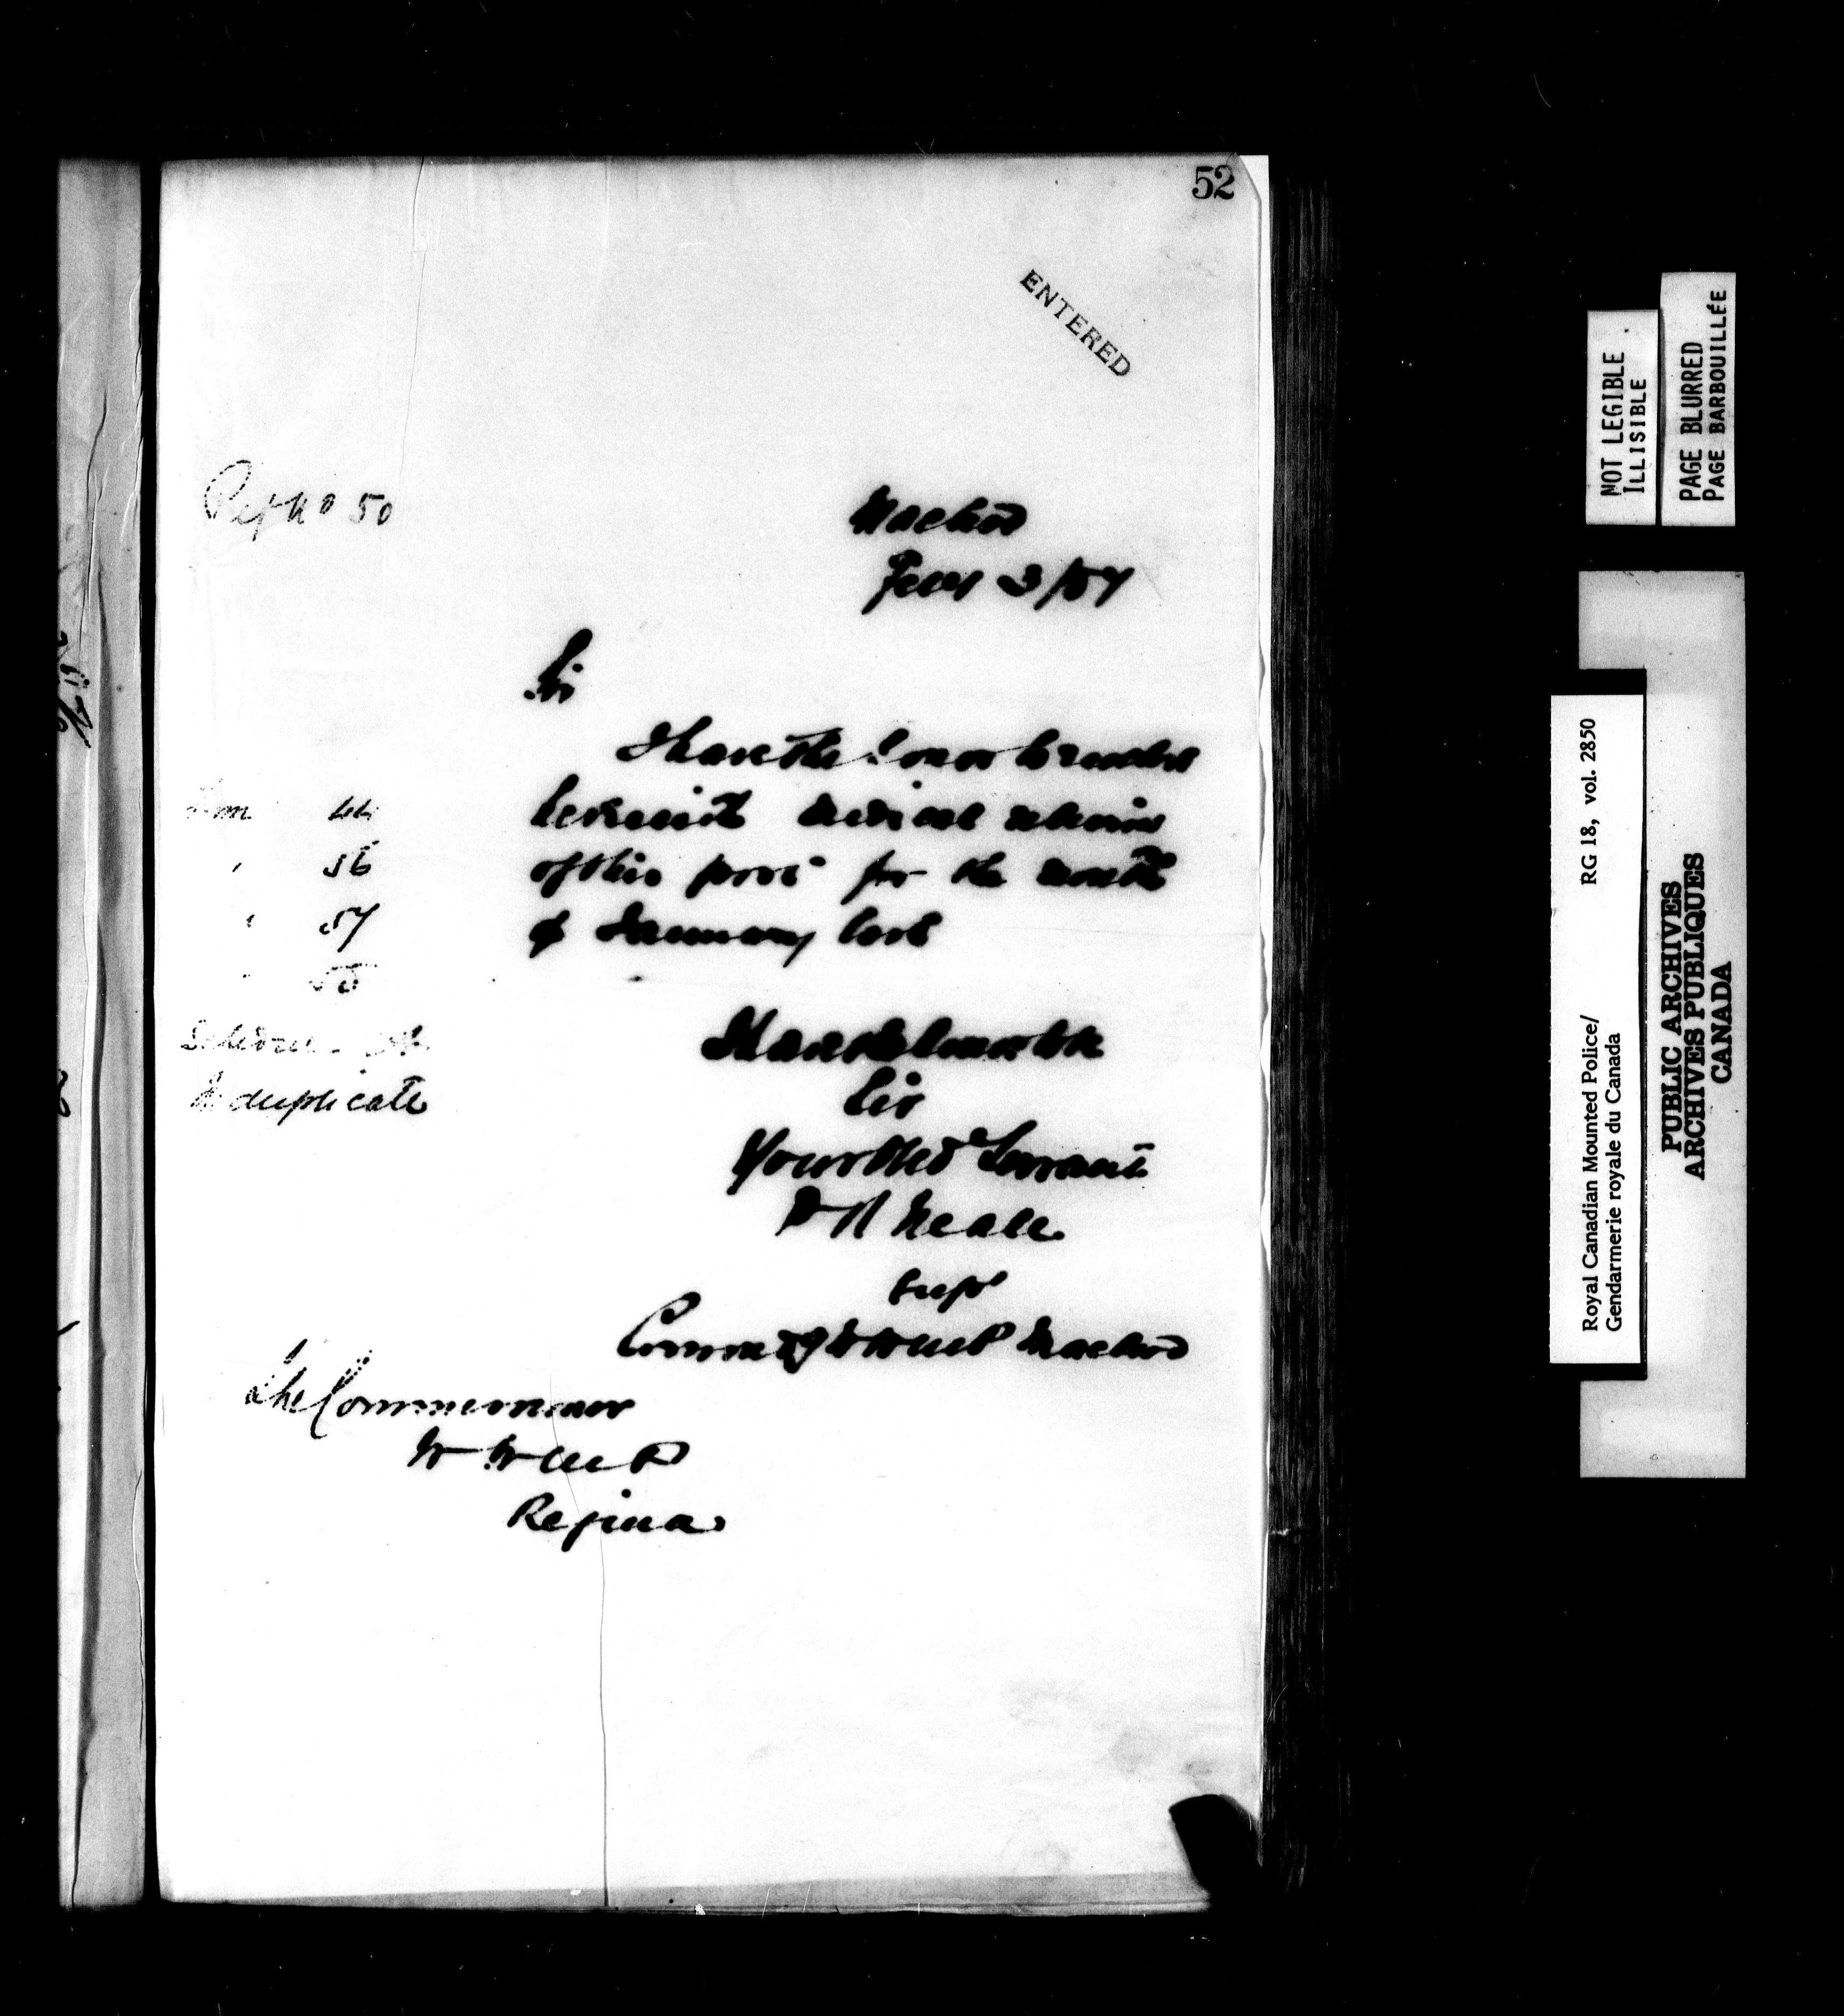 52
ENTERED
Ref No 50
Macleod
Feby 3/87
Sir
I have the honor to render
herewith medical returns
of this post for the month
of January last
Form 44
" 56
" 57
" 58
In duplicate
I have the honor to be
Sir
Your Obed Servant
P R Neale
Supt
Commdg N W M P Macleod
The Commissioner
N W M P
Regina
NOT LEGIBLE
ILLISIBLE
PAGE BLURRED
PAGE BARBOUILLÉE
RG 18, vol. 2850
Royal Canadian Mounted Police/
Gendarmerie royale du Canada
PUBLIC ARCHIVES
ARCHIVES PUBLIQUES
CANADA